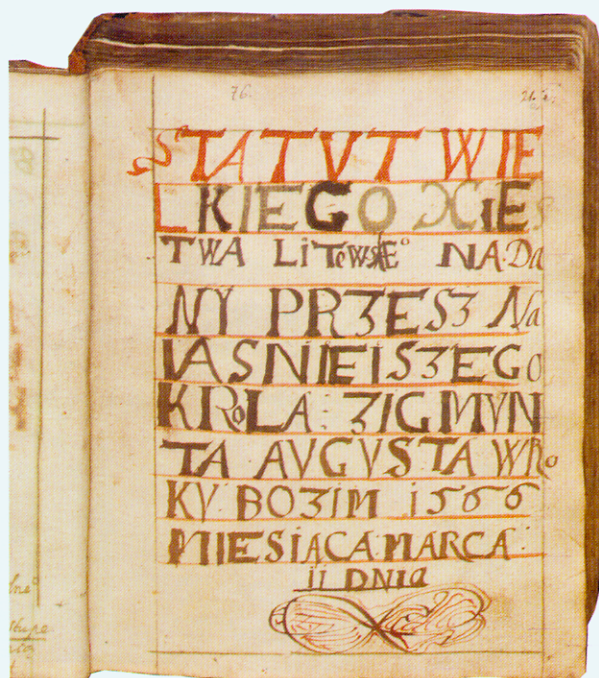 76.
STATVT WIE
LKIEGO XIĘS
TWA LITEWSKE° NADA
NY PRZESZ Na
IASNIEISZEGo
KRoLA: ZIGMVN
TA AVGVSTA WRo
KV BOZIM 1566
MIESIĄCA MARCA
ii DNIa